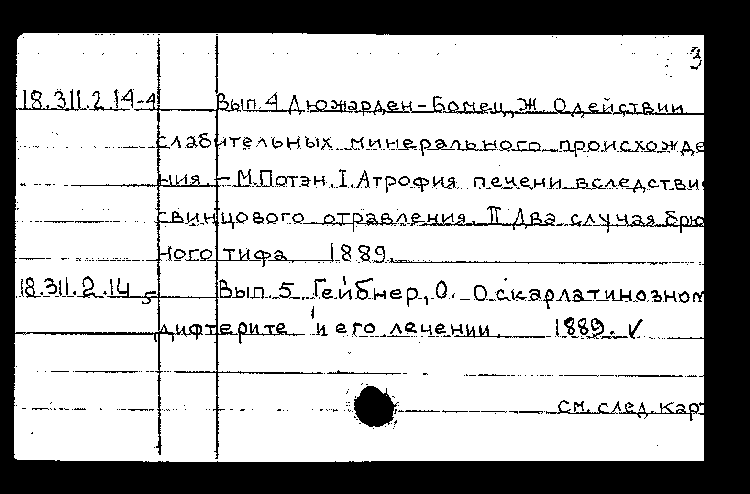 3
18.311.2.14-4 Вып.4 Дюжарден-Бомец, Ж. О действии
слабительных минерального происхожде
ния. - М.Потэн. I. Атрофия печени вследстви
свинцового отравления. II Два случая брю
ного тифа 1889.
18.311.2.14 5 Вып. 5 Гейбнер, О. О скарлатинозном
дифтерите и его лечении. 1889. ✓
см. след. карт